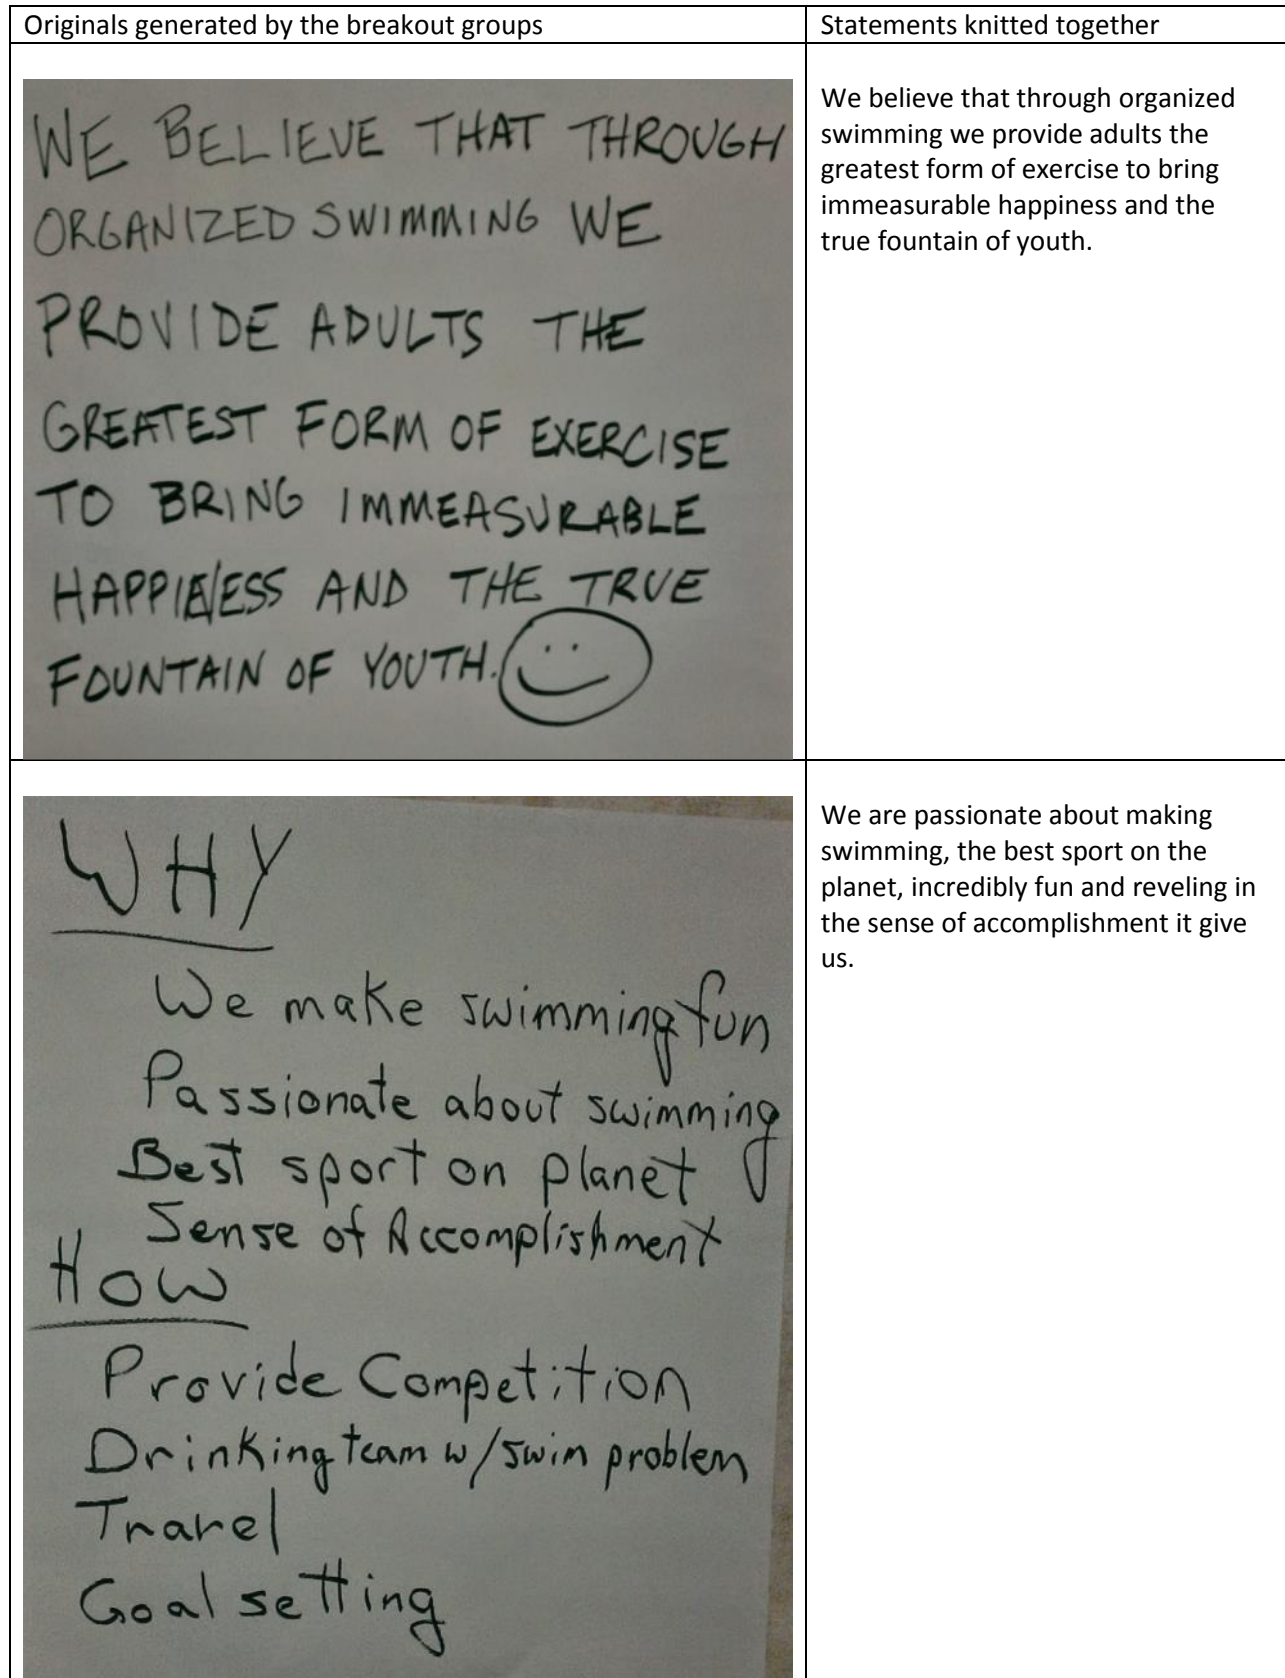 Originals generated by the breakout groups
Statements knitted together
WE BELIEVE THAT THROUGH
ORGANIZED SWIMMING WE
PROVIDE ADULTS THE
GREATEST FORM OF EXERCISE
TO BRING IMMEASURABLE
HAPPINESS AND THE TRUE
FOUNTAIN OF YOUTH.
We believe that through organized
swimming we provide adults the
greatest form of exercise to bring
immeasurable happiness and the
true fountain of youth.
WHY
We make swimming fun
Passionate about swimming
Best sport on planet
Sense of Accomplishment
HOW
Provide Competition
Drinking team w/swim problem
Travel
Goal setting
We are passionate about making
swimming, the best sport on the
planet, incredibly fun and reveling in
the sense of accomplishment it give
us.